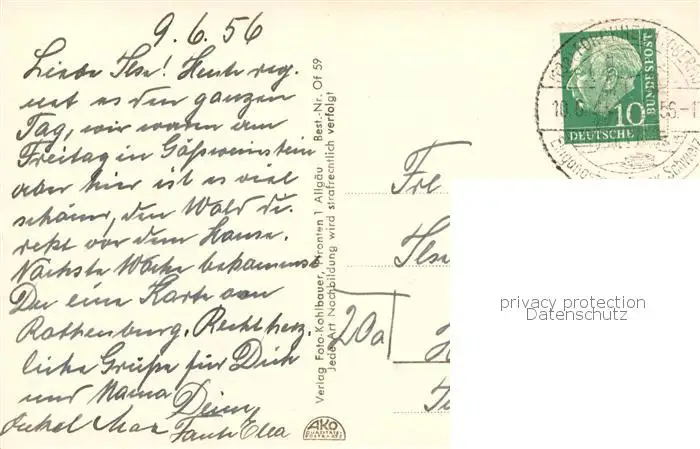 9.6.56
Liebe Ilse! Heute reg.
net es den ganzen
Tag, wir waren am
Freitag in Gößweinstein
aber hier ist es viel
schöner, den Wald di.
rekt vor dem Hause.
Nächste Woche bekommst
Du eine Karte von
Rothenburg. Recht herz.
liche Grüße für Dich
und Mama Deine
Onkel Max Tante Ella
Verlag Foto-Kohlbauer, Pfronten 1 Allgäu Best.-Nr. Of 59
Jede Art Nachbildung wird strafrechtlich verfolgt
AKO
10
DEUTSCHE
BUNDESPOST
Frl
Ilse
20a
privacy protection
Datenschutz